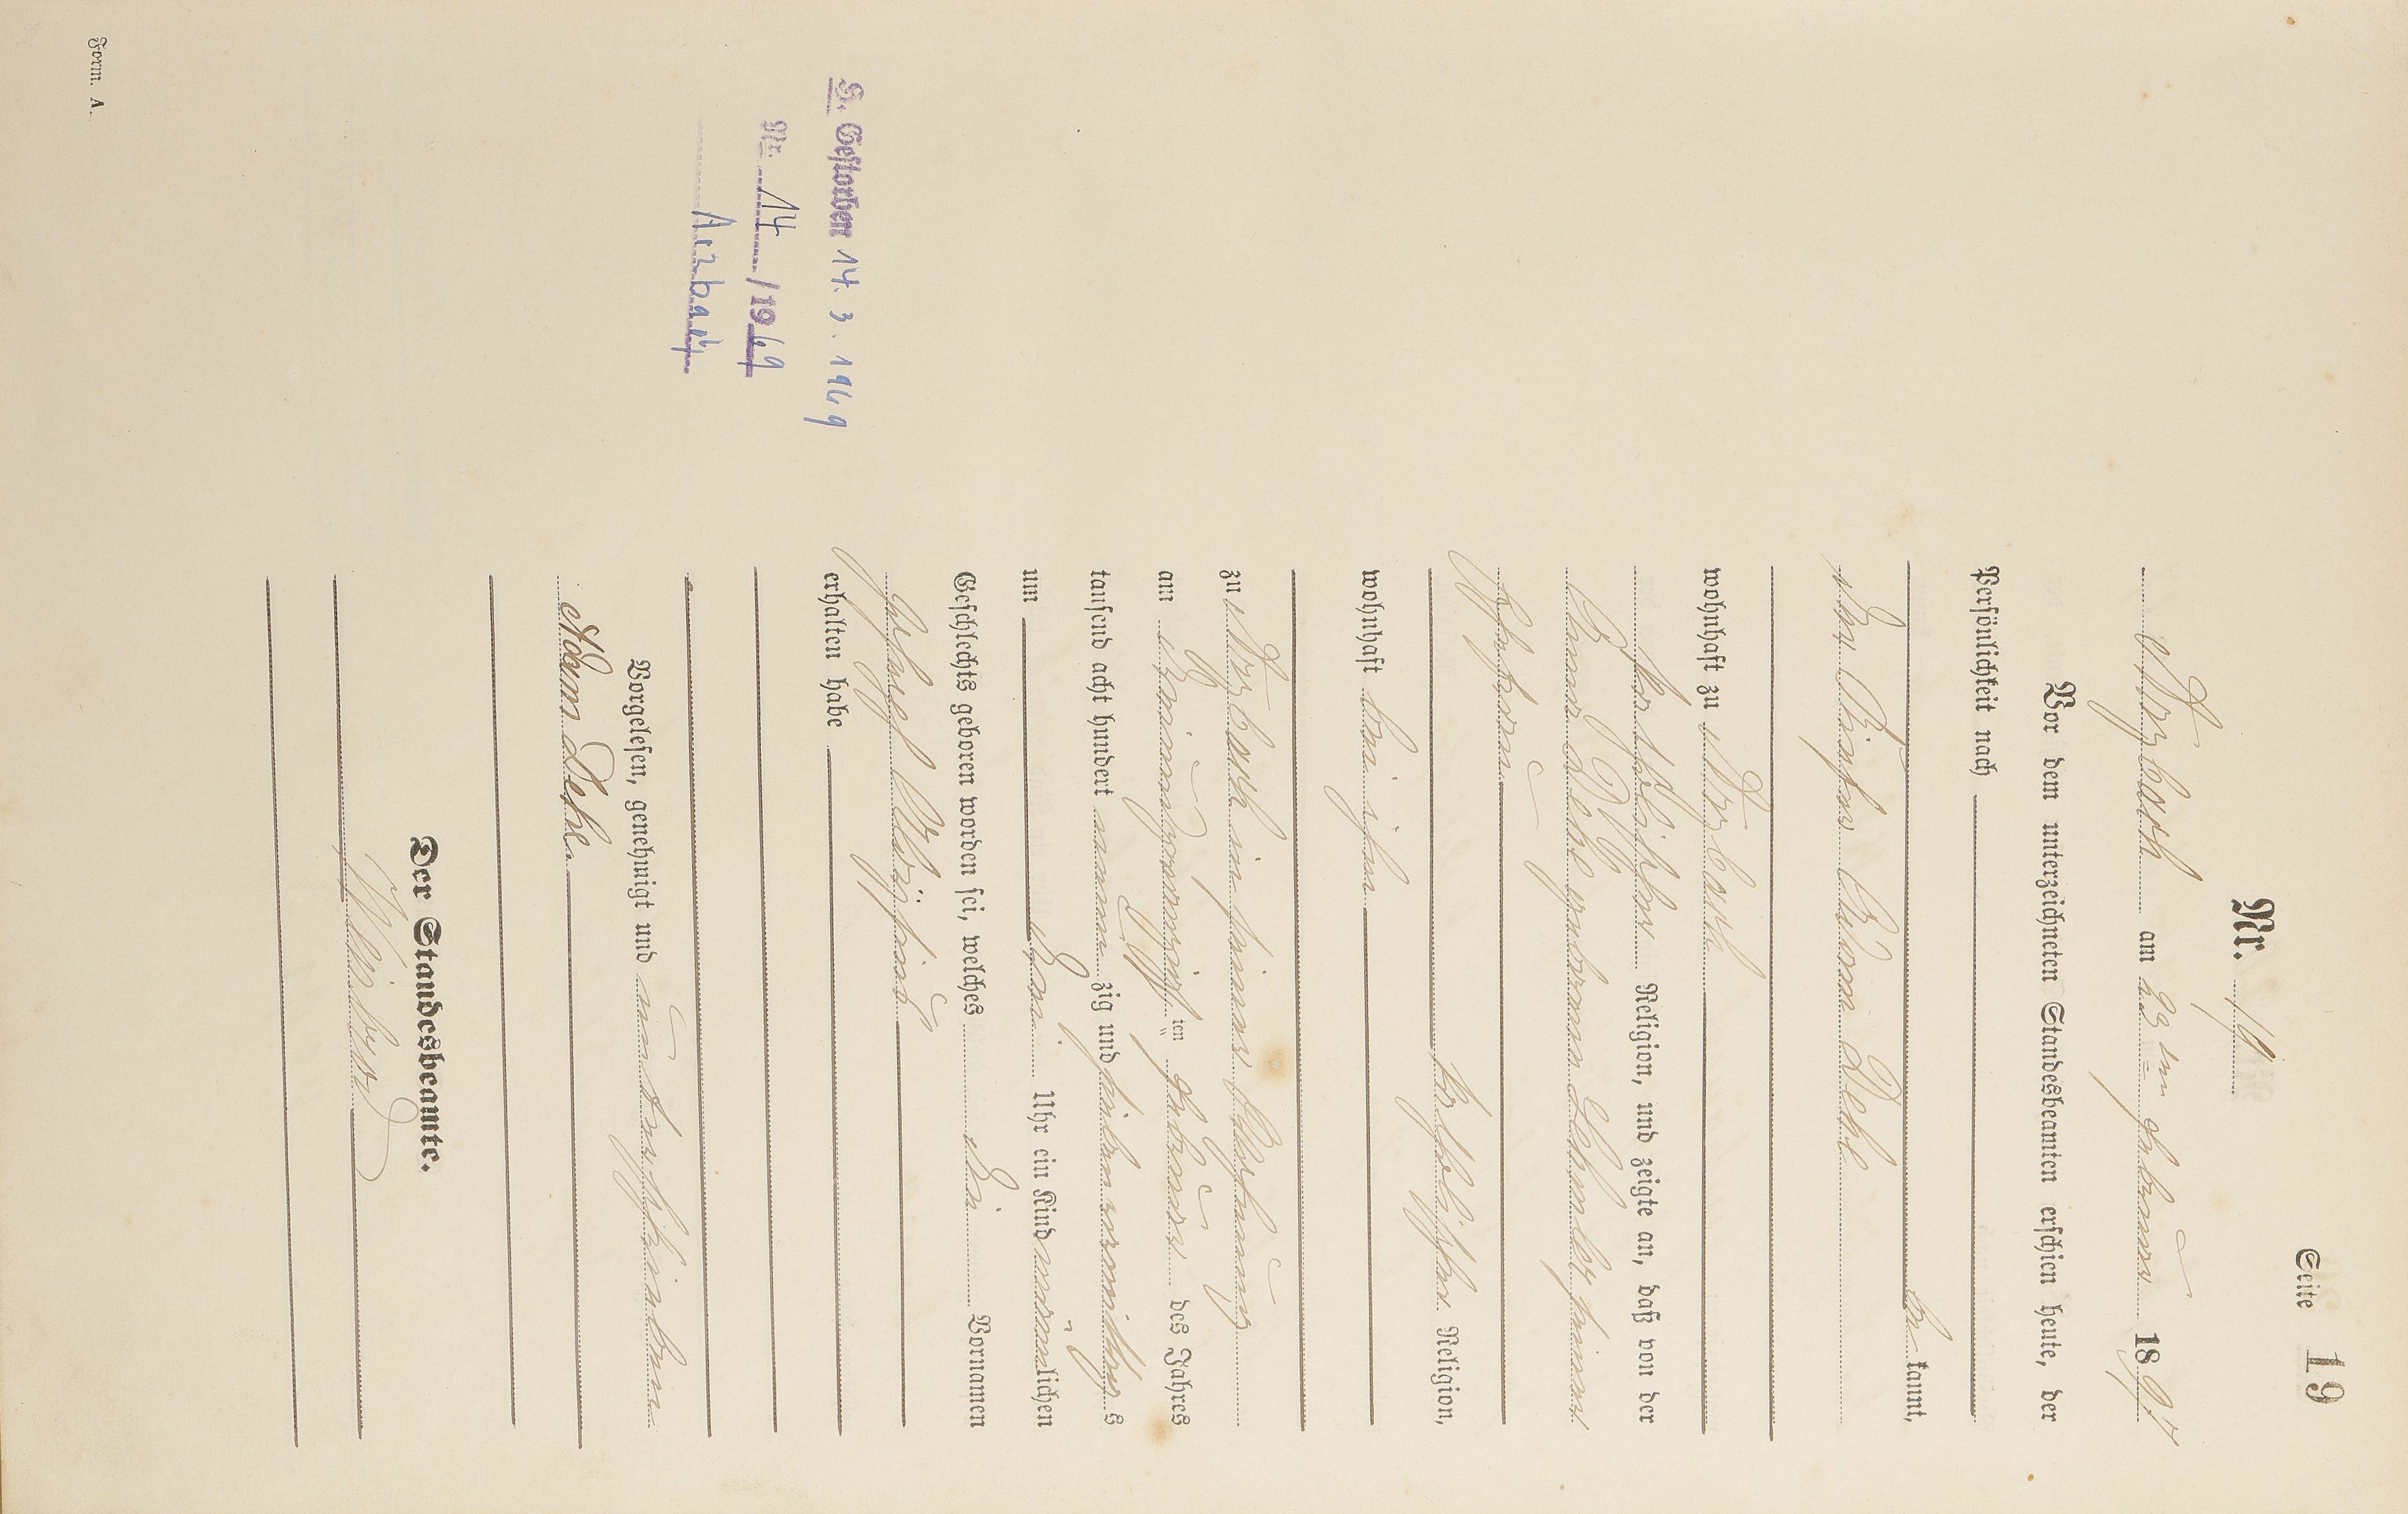 Seite 19
Nr. 19
Arzbach am 23ten Februar 1897
Vor dem unterzeichneten Standesbeamten erschien heute, der
Persönlichkeit nach
be kannt,
der Adam Dehe
wohnhaft zu Arzbach
katholischer Religion, und zeigte an, daß von der
Anna Dehe geborenen seiner
Ehefrau
katholischer Religion,
wohnhaft bei ihm
zu Arzbach in seiner Wohnung
am ten Februar des Jahres
tausend acht hundert neun zig und sieben Vormittags
um drei Uhr ein Kind männlichen
Geschlechts geboren worden sei, welches die Vornamen
Joseph
erhalten habe
Vorgelesen, genehmigt und unterschrieben
Adam Dehe.
Der Standesbeamte.
S. Gestorben 14. 3. 1969
Nr. 14 / 1969
Arzbach
Form. A.